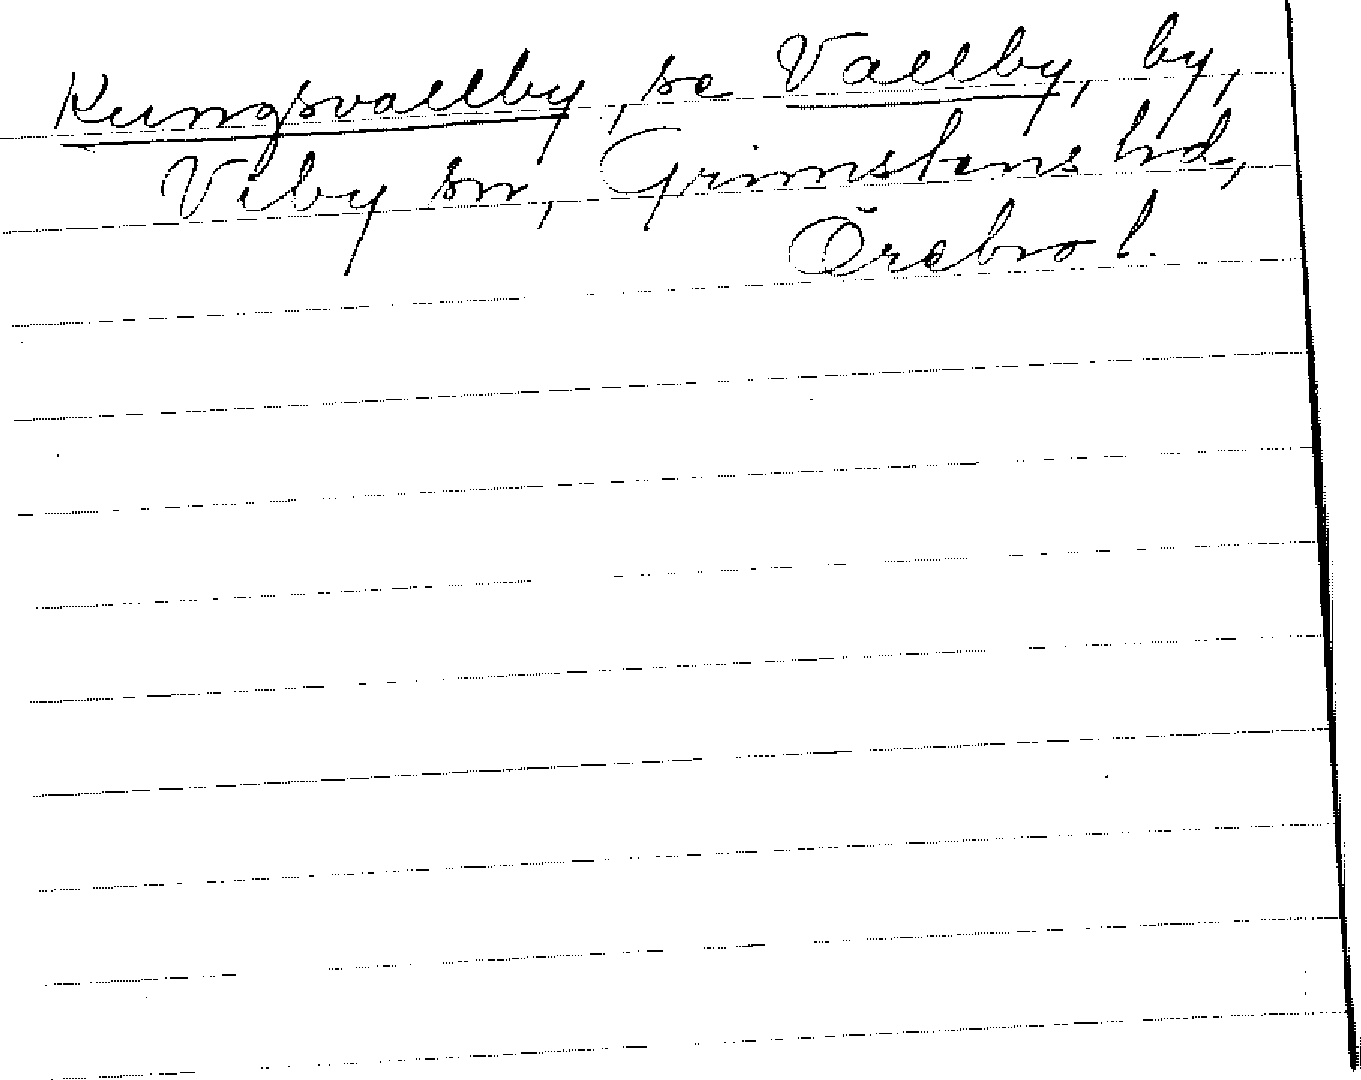 Kungsvallby, se Vallby, by,
Viby sn, Grimstens hd,
Örebro l.